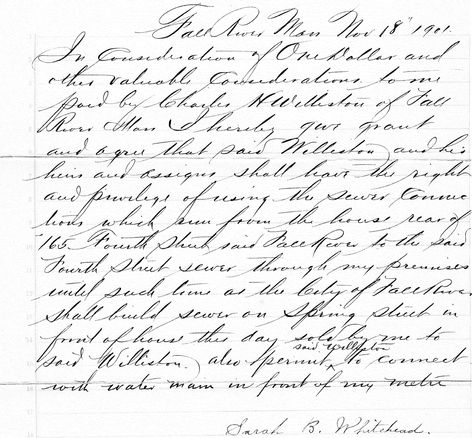 Fall River Mass Nov 18" 1901.
In Consideration of One Dollar and
other valuable Considerations to me
paid by Charles H Williston of Fall
River Mass I hereby give grant
and agree that said Williston and his
heirs and assigns shall have the right
and privilege of using the sewer Connec
tions which run from the house rear of
165 Fourth Street said Fall River to the said
Fourth Street sewer through my premises
until such time as the City of Fall River
shall build sewer on Spring Street in
front of house this day sold by me to
said Williston
said Williston. also permit ^ to connect
with water main in front of my
Sarah B. Whitehead.